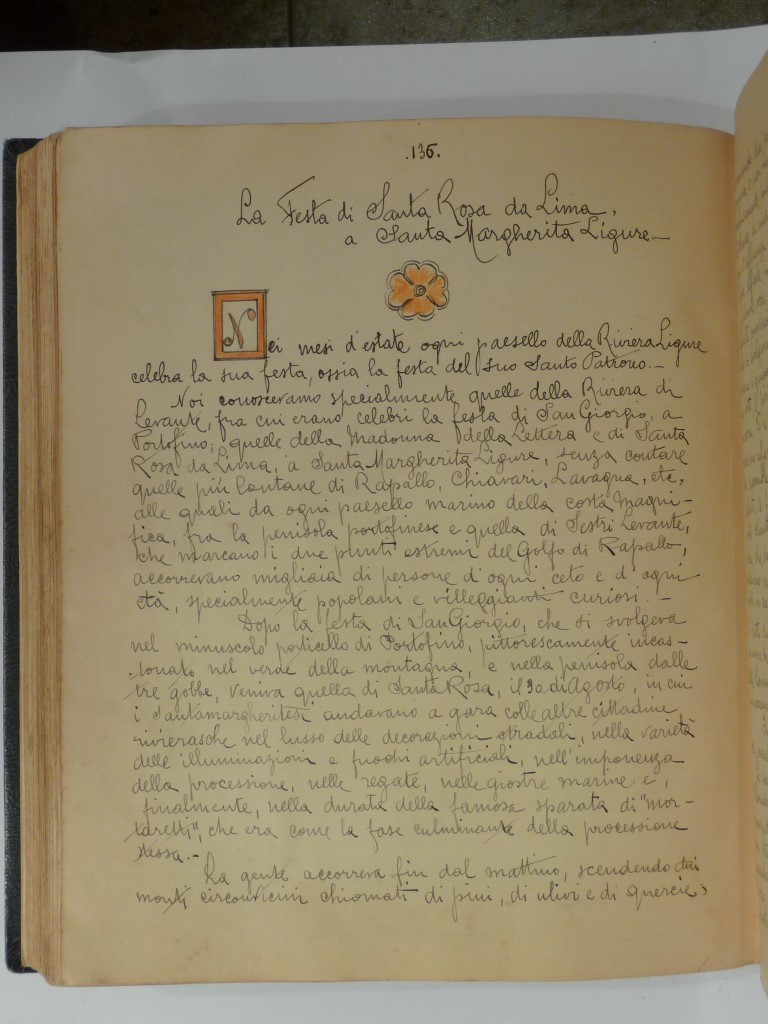 .136.
La Festa di Santa Rosa da Lima,
a Santa Margherita Ligure.-
Nei mesi d'estate ogni paesello della Riviera Ligure
celebra la sua festa, ossia la festa del suo Santo Patrono.-
Noi conoscevamo specialmente quelle della Riviera di
Levante, fra cui erano celebri la festa di San Giorgio, a
Portofino; quelle della Madonna della Lettera e di Santa
Rosa da Lima, a Santa Margherita Ligure, senza contare
quelle più lontane di Rapallo, Chiavari, Lavagna, etc,
alle quali da ogni paesello marino della costa magni-
fica, fra la penisola portofinese e quella di Sestri Levante,
che marcano i due punti estremi del Golfo di Rapallo,
accorrevano migliaia di persone d'ogni ceto e d'ogni
età, specialmente popolani e villeggianti curiosi.-
Dopo la festa di San Giorgio, che si svolgeva
nel minuscolo porticello di Portofino, pittorescamente incas-
tonato nel verde della montagna, e nella penisola dalle
tre gobbe, veniva quella di Santa Rosa, il 30 di Agosto, in cui
i Santamargheritesi andavano a gara colle altre cittadine
rivierasche nel lusso delle decorazioni stradali, nella varietà
delle illuminazioni e fuochi artificiali, nell'imponenza
della processione, nelle regate, nelle giostre marine e,
finalmente, nella durata della famosa sparata di "mor-
taretti", che era come la fase culminante della processione
stessa.-
La gente accorreva fin dal mattino, scendendo dai
monti circonvicini chiomati di pini, di ulivi e di quercie,